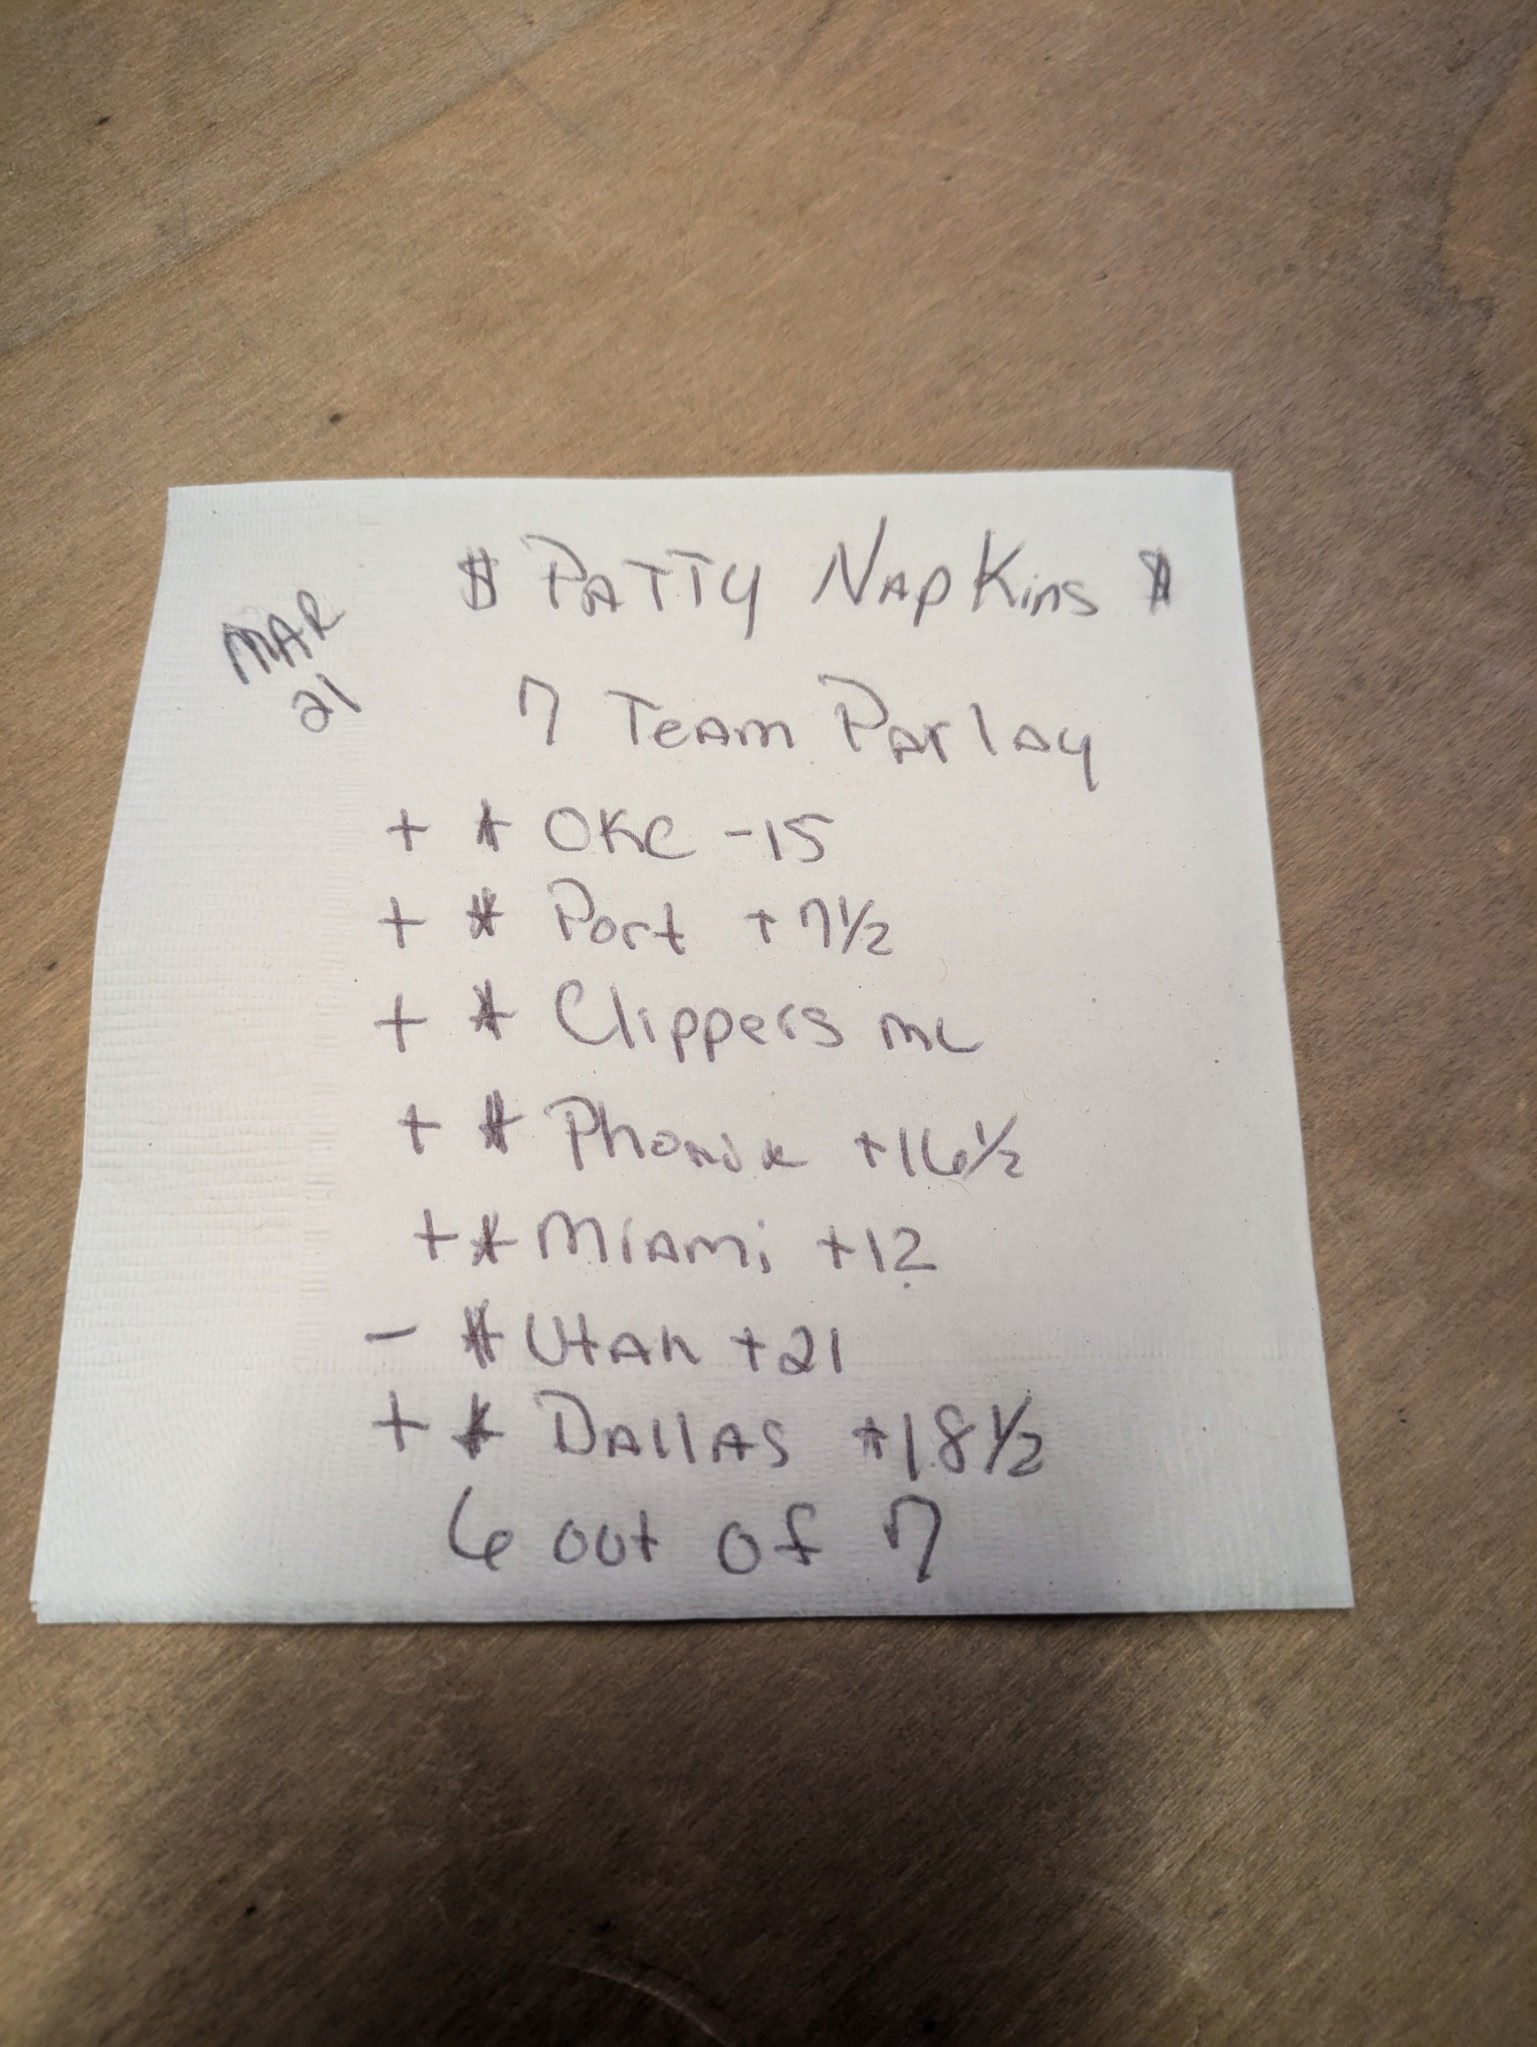 $ PATTY NAPKins $
MAR
21
7 TeAm Parlay
+ * OKC -15
+ * Port +7 1/2
+ * Clippers mL
+ * Phonix +16 1/2
+ * Miami +12
- * UtAh +21
+ * DAllAS +18 1/2
6 out of 7